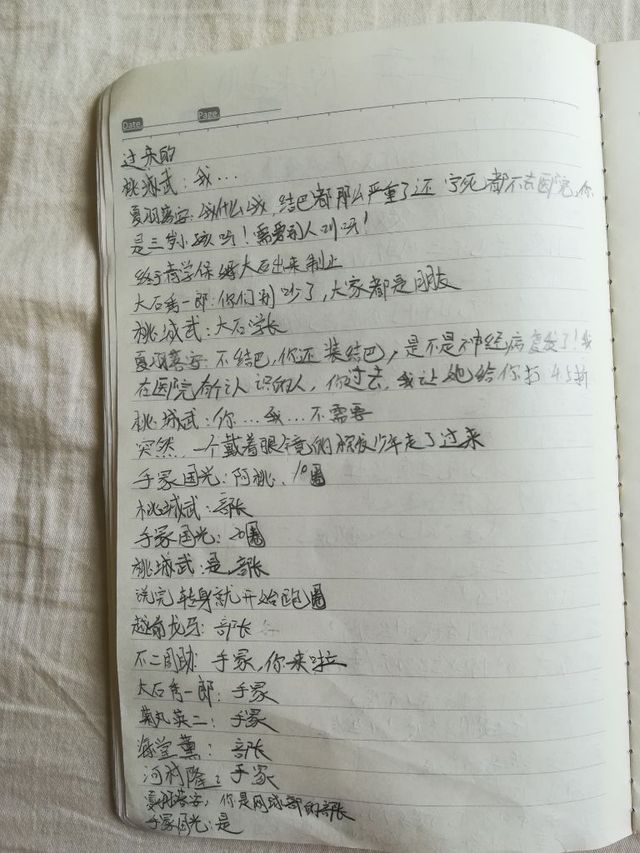 Date Page
过来的
桃城武：我…
夏羽寒字：我什么我，结巴都那么严重了还宁死都不去医院，你
是三岁小孩吗！需要别人叫吗！
终于青学保姆大石出来制止
大石秀一郎：你们别吵了，大家都是朋友
桃城武：大石学长
夏羽寒字：不结巴，你还装结巴，是不是神经病复发了！我
在医院有个认识的人，你过去，我让她给你打4.5折
桃城武：你…我…不需要
突然，一个戴着眼镜的少年走了过来
手冢国光：阿桃，10圈
桃城武：部长
手冢国光：20圈
桃城武：是，部长
说完转身就开始跑圈
越前龙马：部长
不二周助：手冢，你来啦
大石秀一郎：手冢
菊丸英二：手冢
海堂薰：部长
河村隆：手冢
夏羽寒字：你是网球部的部长
手冢国光：是